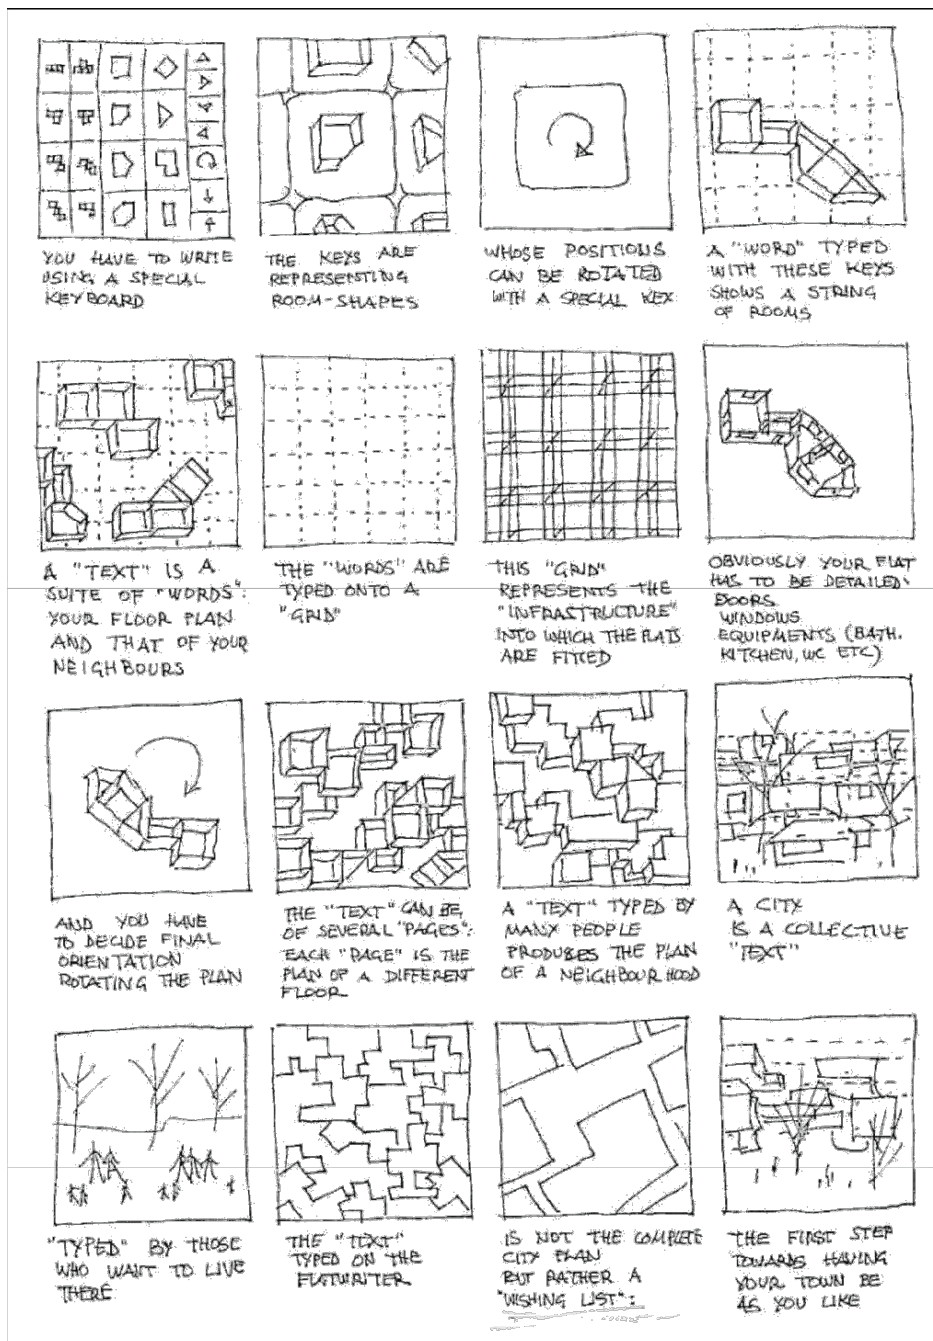 YOU HAVE TO WRITE
USING A SPECIAL
KEYBOARD
THE KEYS ARE
REPRESENTING
ROOM-SHAPES
WHOSE POSITIONS
CAN BE ROTATED
WITH A SPECIAL KEY
A "WORD" TYPED
WITH THESE KEYS
SHOWS A STRING
OF ROOMS
A "TEXT" IS A
SUITE OF "WORDS":
YOUR FLOOR PLAN
AND THAT OF YOUR
NEIGHBOURS
THE "WORDS" ARE
TYPED ONTO A
"GRID"
THIS "GRID"
REPRESENTS THE
"INFRASTRUCTURE"
INTO WHICH THE FLATS
ARE FITTED
OBVIOUSLY YOUR FLAT
HAS TO BE DETAILED:
DOORS
WINDOWS
EQUIPMENTS (BATH.
KITCHEN, WC ETC)
AND YOU HAVE
TO DECIDE FINAL
ORIENTATION
ROTATING THE PLAN
THE "TEXT" CAN BE
OF SEVERAL "PAGES":
EACH "PAGE" IS THE
PLAN OF A DIFFERENT
FLOOR
A "TEXT" TYPED BY
MANY PEOPLE
PRODUSES THE PLAN
OF A NEIGHBOURHOOD
A CITY
IS A COLLECTIVE
"TEXT"
"TYPED" BY THOSE
WHO WANT TO LIVE
THERE
THE "TEXT"
TYPED ON THE
FLATWRITER
IS NOT THE COMPLETE
CITY PLAN
BUT RATHER A
"WISHING LIST":
THE FIRST STEP
TOWARDS HAVING
YOUR TOWN BE
AS YOU LIKE